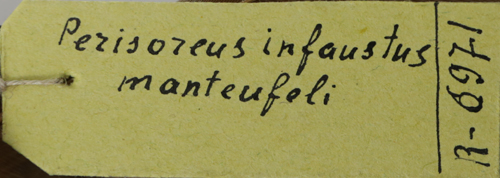 Perisoreus infaustus
manteufeli
R-6971